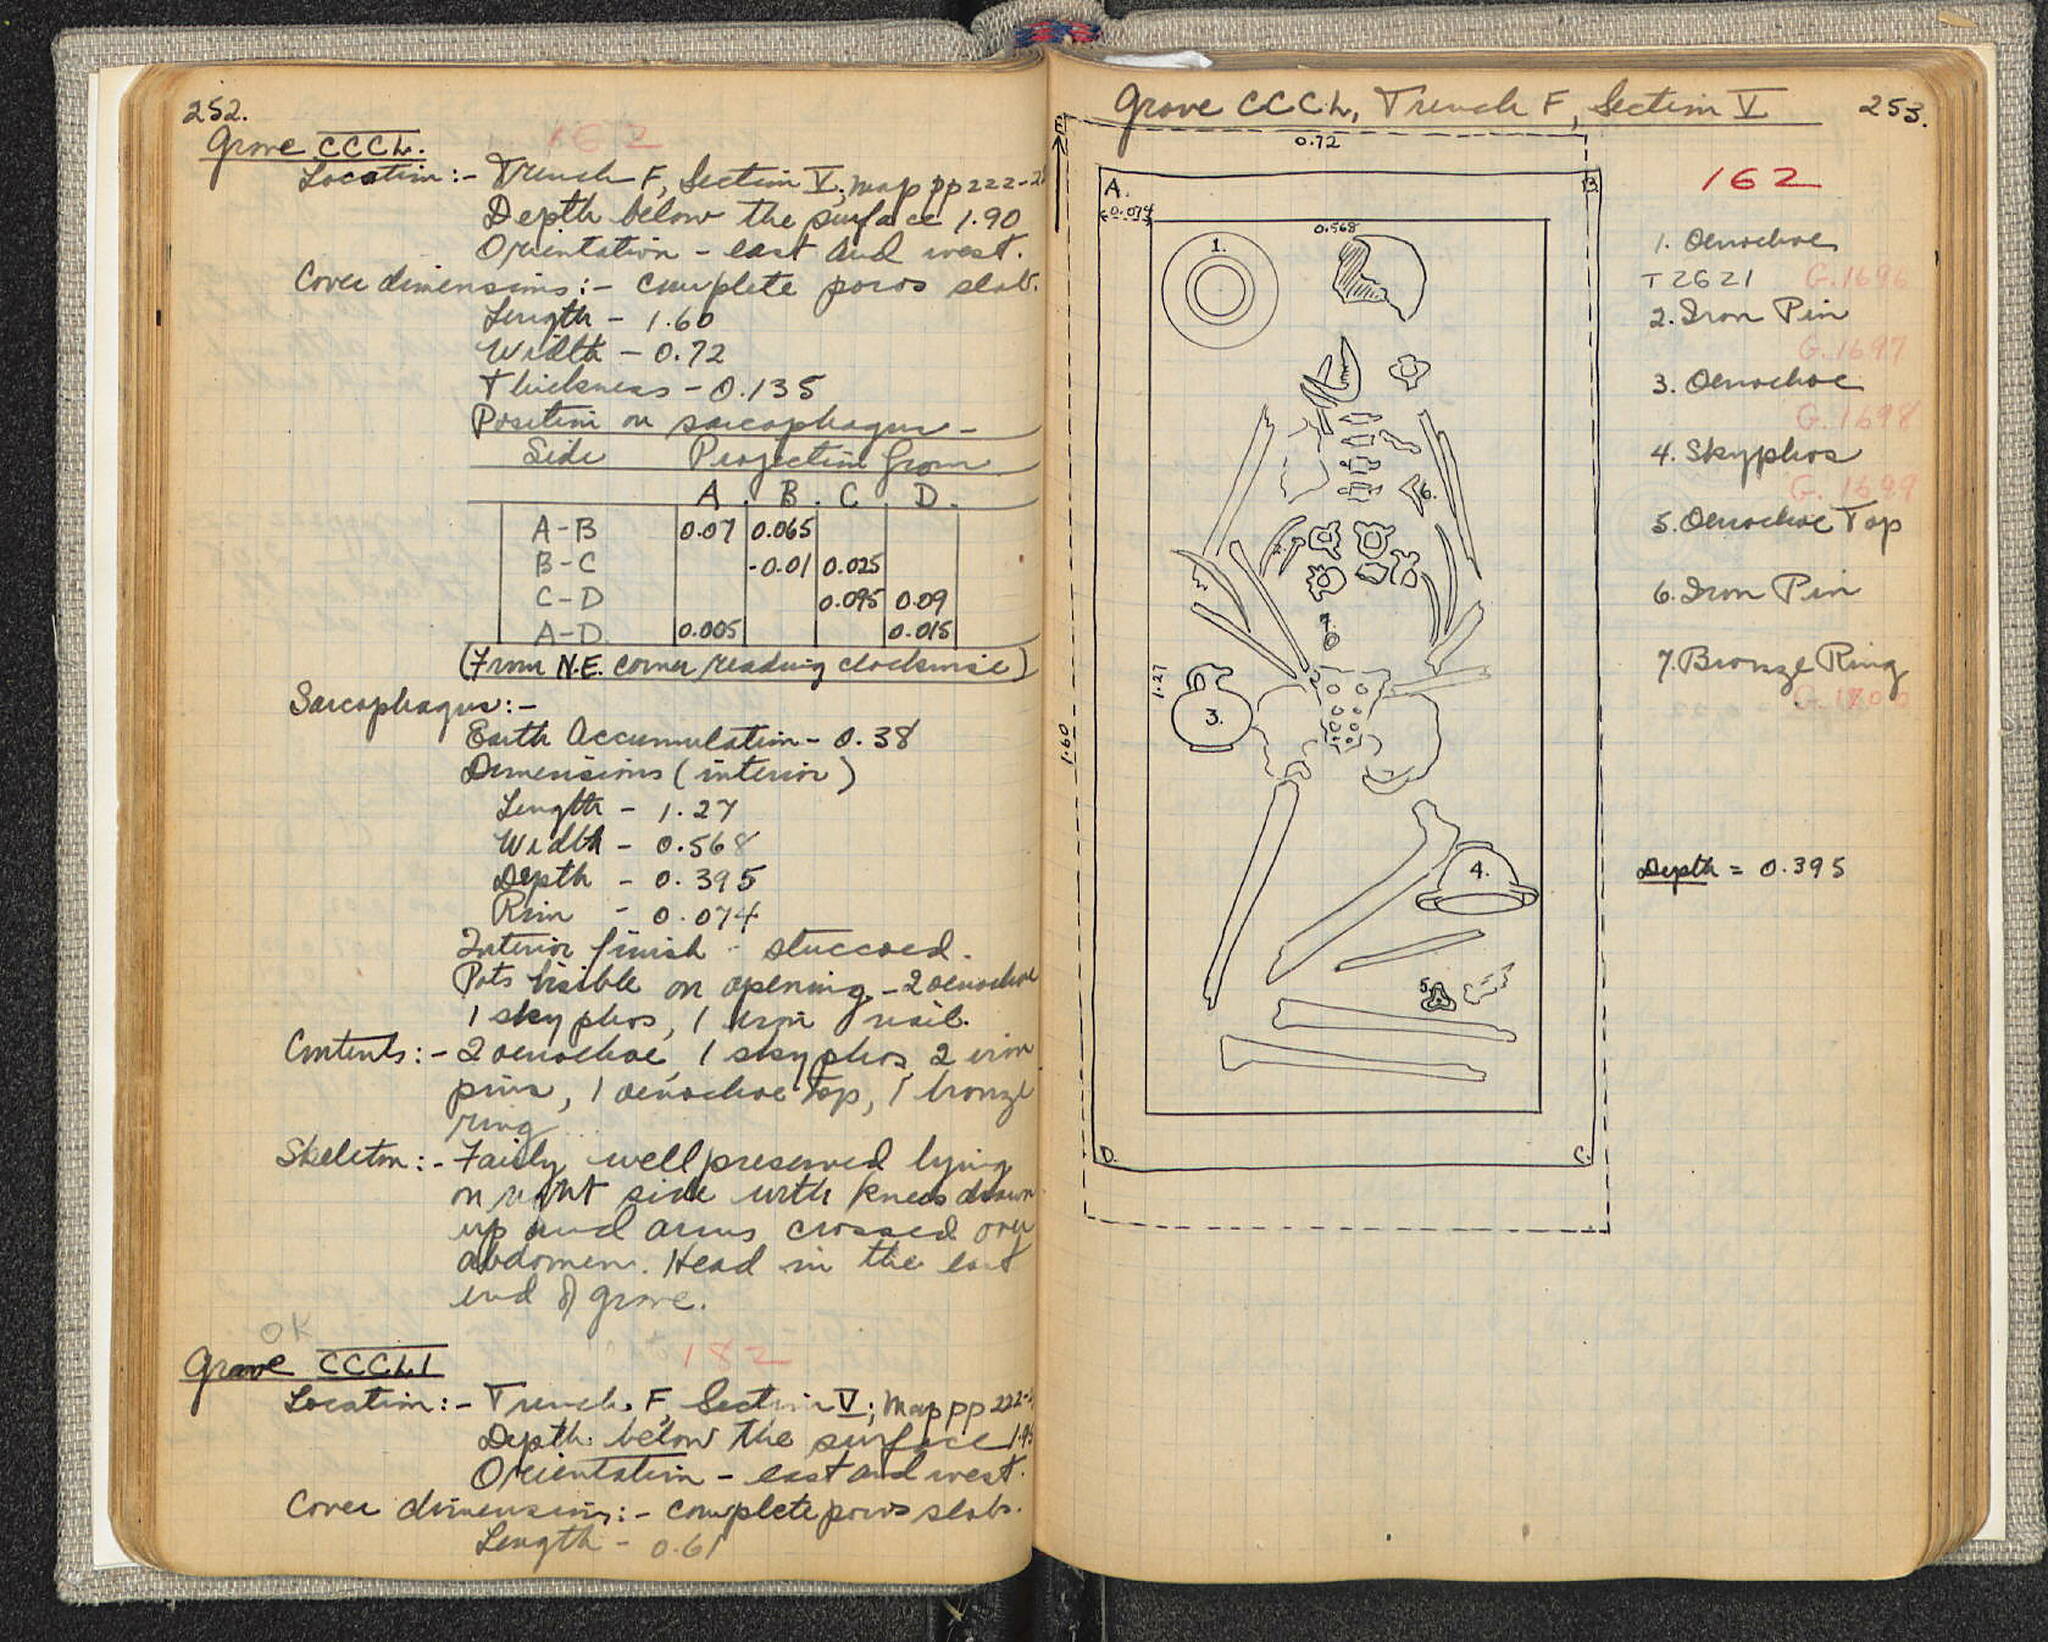 252.
Grave CCCL.
162
Location:- Trench F, Section V; Map pp 222-2
Depth below the surface 1.90
Orientation - east and west.
Cover dimensions:- complete poros slab.
Length - 1.60
Width - 0.72
Thickness - 0.135
Position on sarcophagus -
Side Projection from
A. B. C. D.
A-B 0.07 0.065
B-C -0.01 0.025
C-D 0.095 0.09
A-D. 0.005 0.015
(From N.E. corner reading clockwise)
Sarcophagus:-
Earth Accumulation - 0.38
Dimensions (interior)
Length - 1.27
Width - 0.568
Depth - 0.395
Rim - 0.074
Interior finish - stuccoed.
Pots visible on opening - 2 oenochoe
1 skyphos, 1 iron nail.
Contents:- 2 oenochoe, 1 skyphos, 2 iron
pins, 1 oenochoe top, 1 bronze
ring
Skeleton:- Fairly well preserved lying
on right side with knees drawn
up and arms crossed over
abdomen. Head in the east
end of grave.
OK
Grave CCCLI
182
Location:- Trench F, Section V; Map pp 222-
Depth below the surface 1.95
Orientation - east and west.
Cover dimensions:- complete poros slab.
Length - 0.61
Grave CCCL, Trench F, Section V
253.
E
0.72
A.
B.
0.074
0.568
1.
6.
2.
7.
1.27
3.
1.60
4.
5.
D.
C.
162
1. Oenochoe
T2621 G.1696
2. Iron Pin
G.1697
3. Oenochoe
G.1698
4. Skyphos
G.1699
5. Oenochoe Top
6. Iron Pin
7. Bronze Ring
G.1700
Depth = 0.395